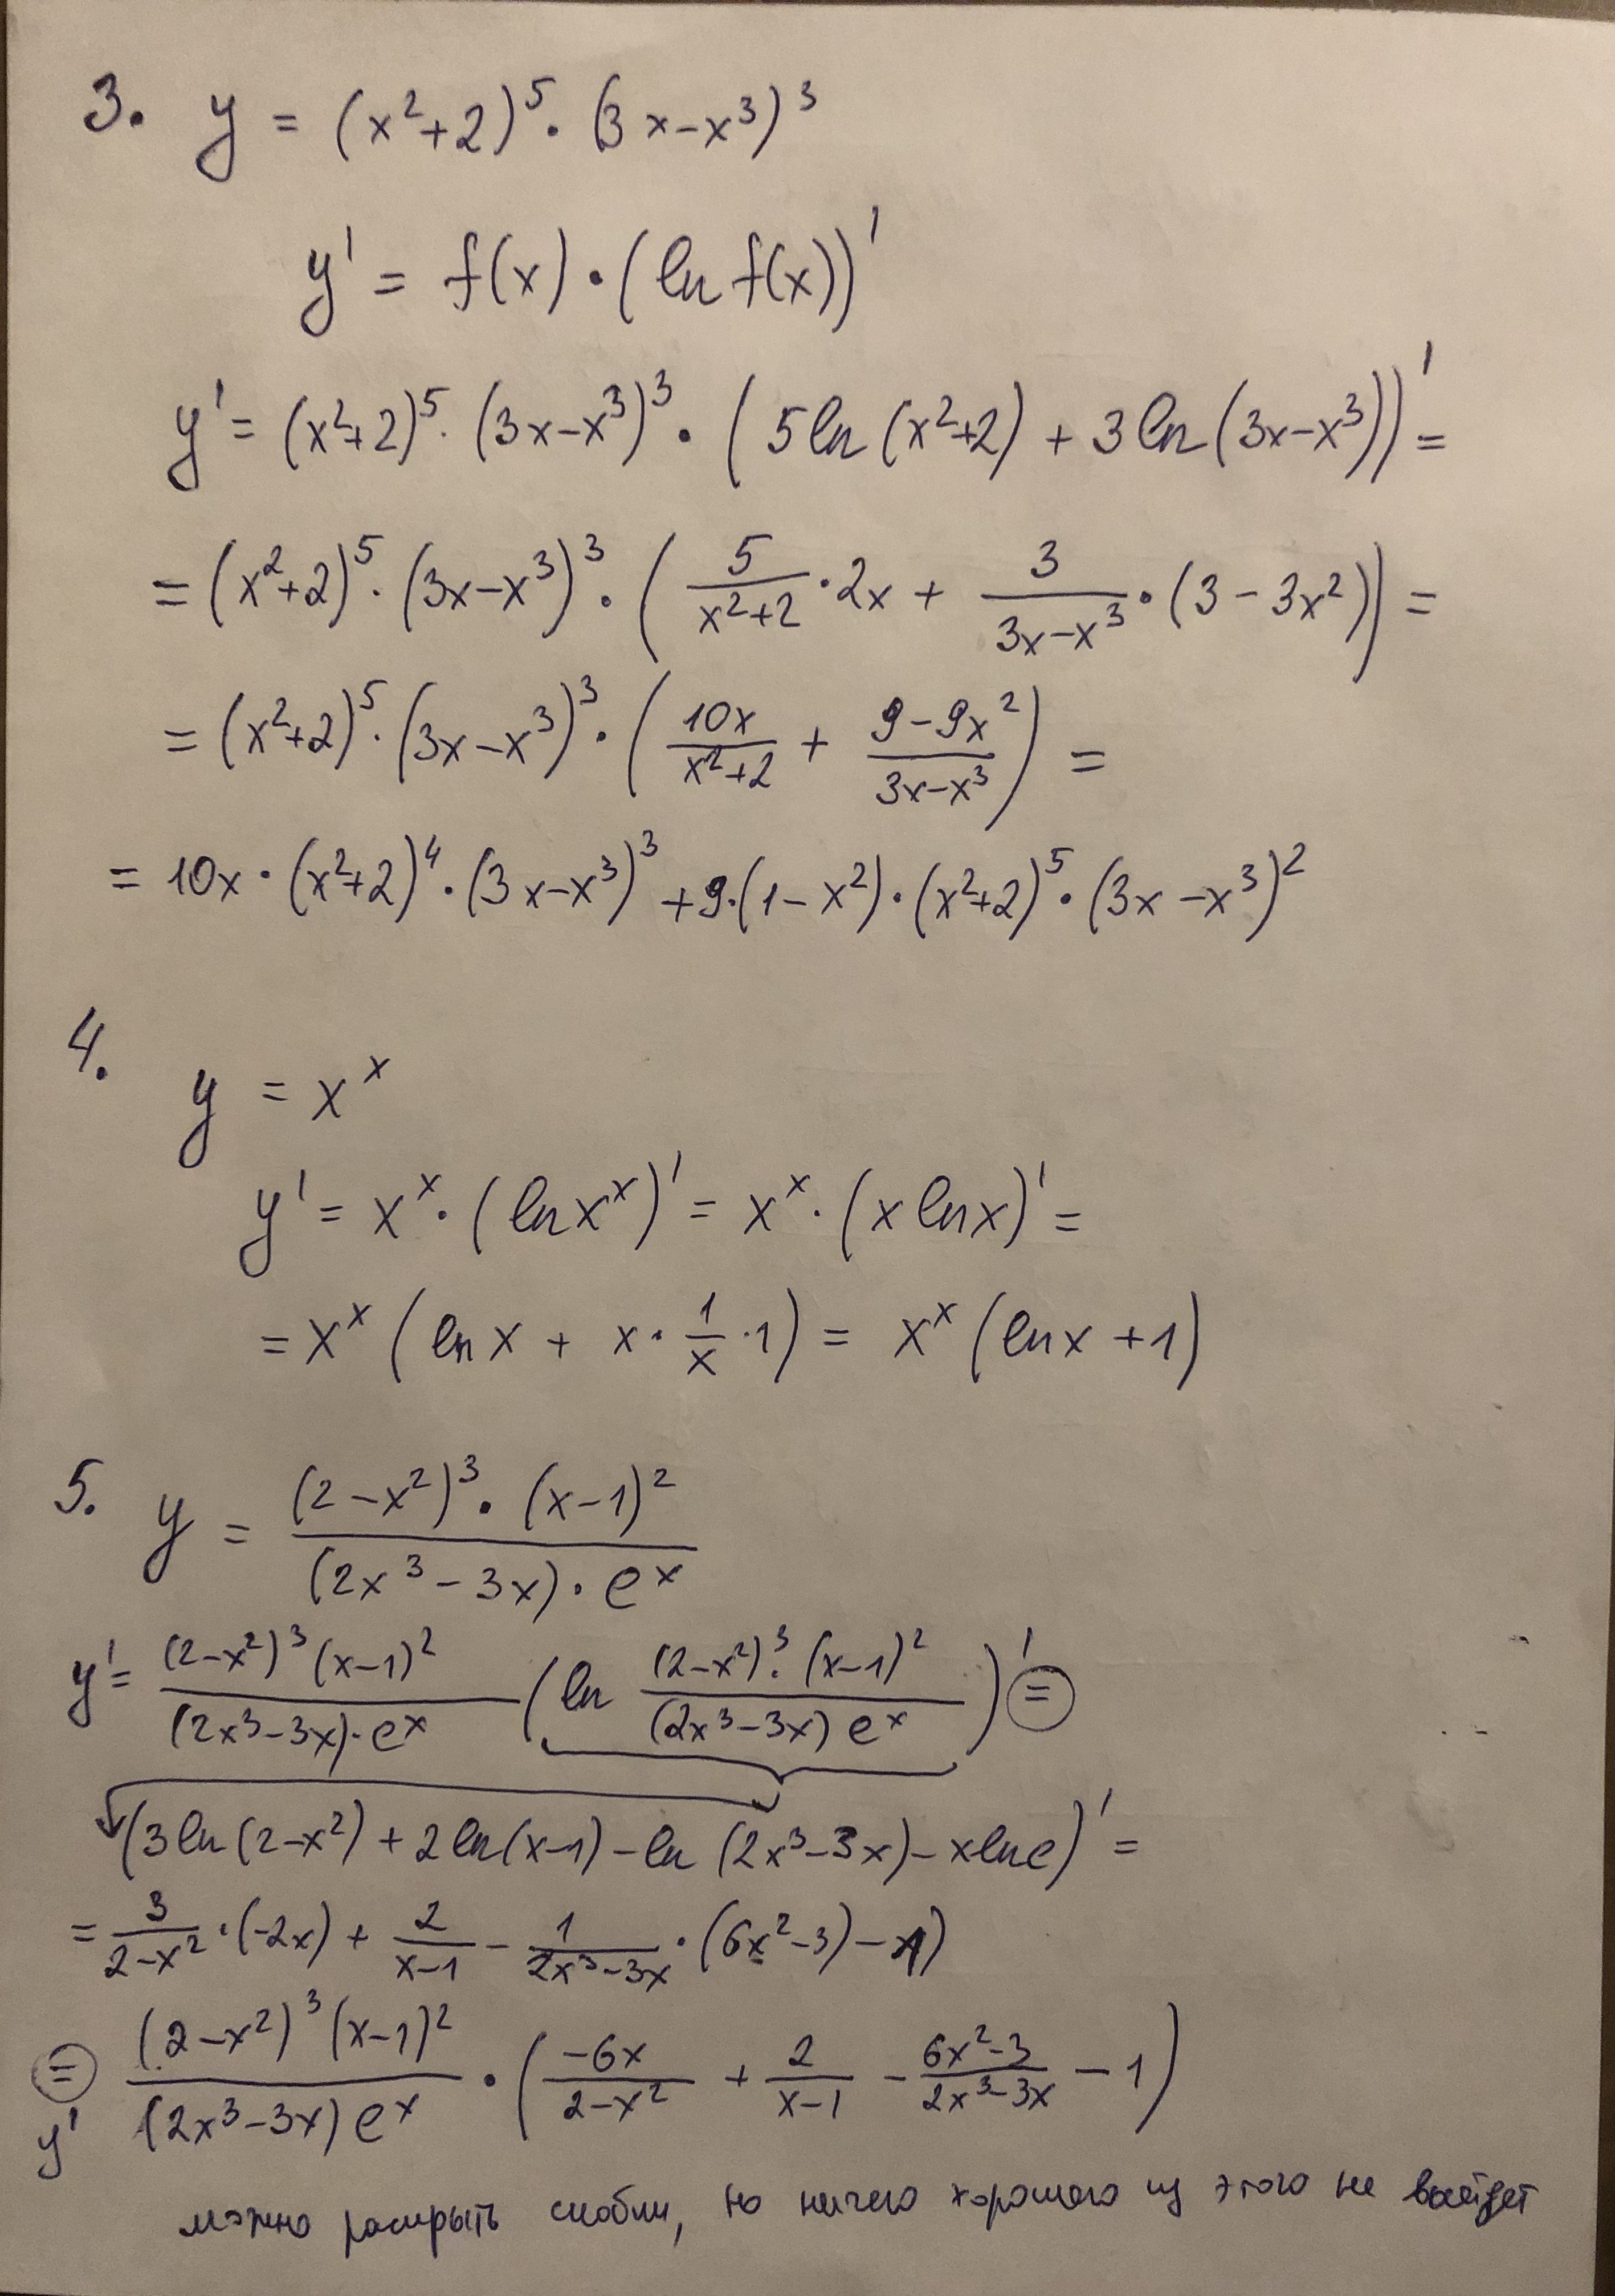 3. y = (x²+2)⁵ · (3x−x³)³
y' = f(x) · (ln f(x))'
y' = (x²+2)⁵ · (3x−x³)³ · (5ln(x²+2) + 3ln(3x−x³))' =
= (x²+2)⁵ · (3x−x³)³ · (5/(x²+2) · 2x + 3/(3x−x³) · (3 − 3x²)) =
= (x²+2)⁵ · (3x−x³)³ · (10x/(x²+2) + (9−9x²)/(3x−x³)) =
= 10x · (x²+2)⁴ · (3x−x³)³ + 9·(1−x²) · (x²+2)⁵ · (3x−x³)²
4.
y = xˣ
y' = xˣ · (ln xˣ)' = xˣ · (x ln x)' =
= xˣ (ln x + x · 1/x · 1) = xˣ (ln x + 1)
5. y = ((2−x²)³ · (x−1)²)/((2x³−3x) · eˣ)
y' = ((2−x²)³ (x−1)²)/((2x³−3x) · eˣ) (ln ((2−x²)³ · (x−1)²)/((2x³−3x) eˣ))' =
(3ln(2−x²) + 2ln(x−1) − ln(2x³−3x) − x ln e)' =
= 3/(2−x²) · (−2x) + 2/(x−1) − 1/(2x³−3x) · (6x²−3) − 1)
= ((2−x²)³ (x−1)²)/((2x³−3x) eˣ) · (−6x/(2−x²) + 2/(x−1) − (6x²−3)/(2x³−3x) − 1)
y'
можно раскрыть скобки, но ничего хорошего из этого не выйдет